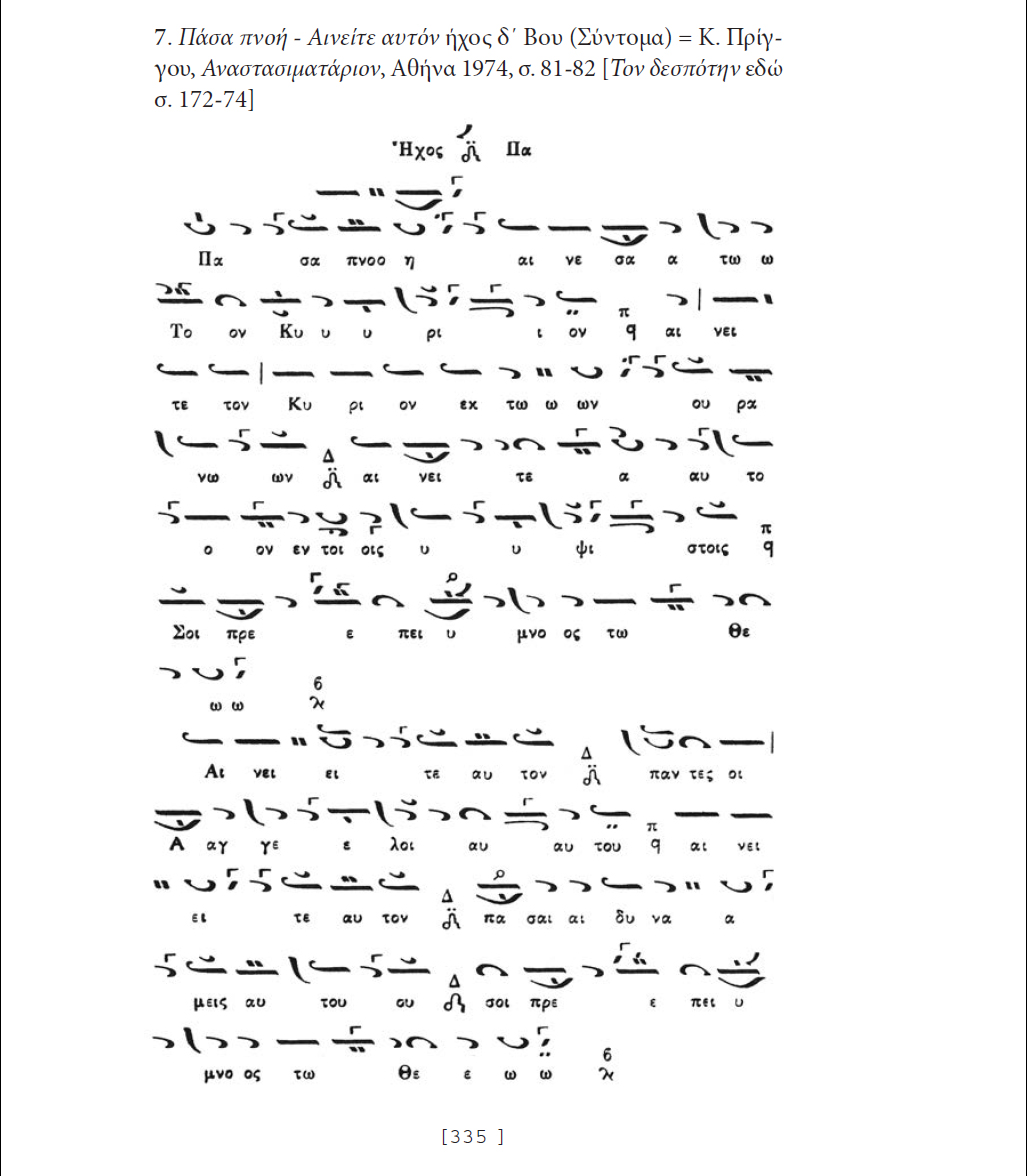 7. Πάσα πνοή - Αινείτε αυτόν ήχος δ΄ Βου (Σύντομα) = Κ. Πρίγ-
γου, Αναστασιματάριον, Αθήνα 1974, σ. 81-82 [Τον δεσπότην εδώ
σ. 172-74]
Ἦχος Πα
Πα σα πνοο η αι νε σα α τω ω
Το ον Κυ υ υ ρι ι ον π q αι νει
τε τον Κυ ρι ον εκ τω ω ων ου ρα
νω ων Δ αι νει τε α αυ το
ο ον εν τοι οις υ υ ψι στοις π q
Σοι πρε ε πει υ μνο ος τω Θε
ω ω
Αι νει ει τε αυ τον Δ παν τες οι
Α αγ γε ε λοι αυ αυ του π q αι νει
ει τε αυ τον Δ πα σαι αι δυ να α
μεις αυ του ου Δ σοι πρε ε πει υ
μνο ος τω Θε ε ω ω
[335 ]